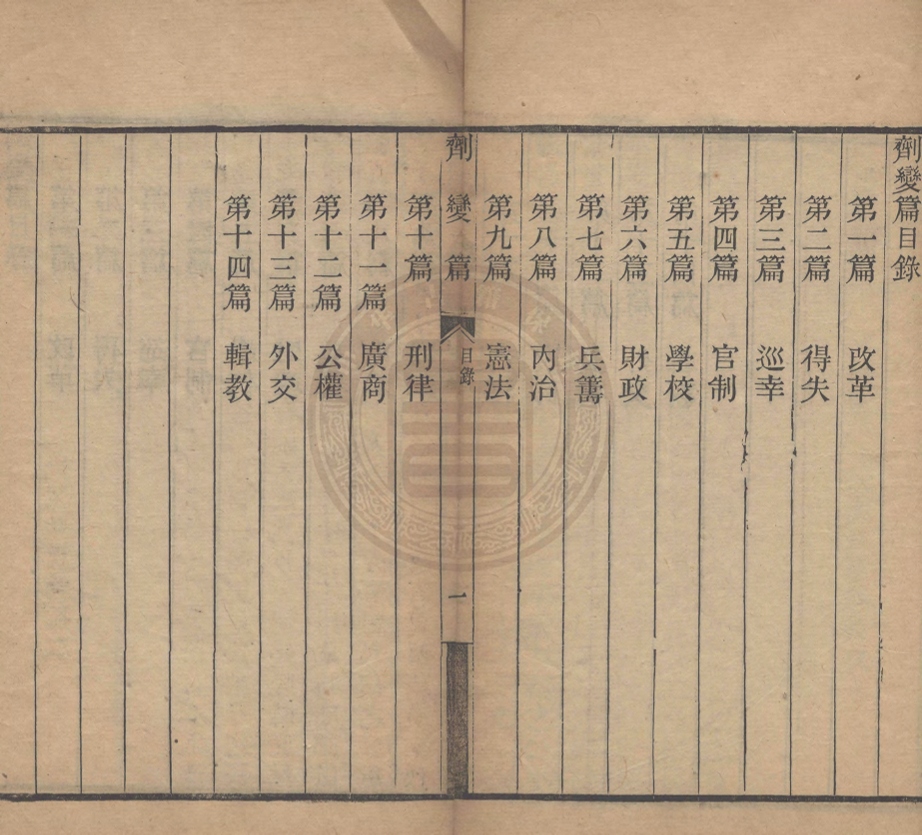 劑變篇目錄
第一篇　改革
第二篇　得失
第三篇　巡幸
第四篇　官制
第五篇　學校
第六篇　財政
第七篇　兵籌
第八篇　內治
第九篇　憲法
劑變篇　目錄　一
第十篇　刑律
第十一篇　廣商
第十二篇　公權
第十三篇　外交
第十四篇　輯教